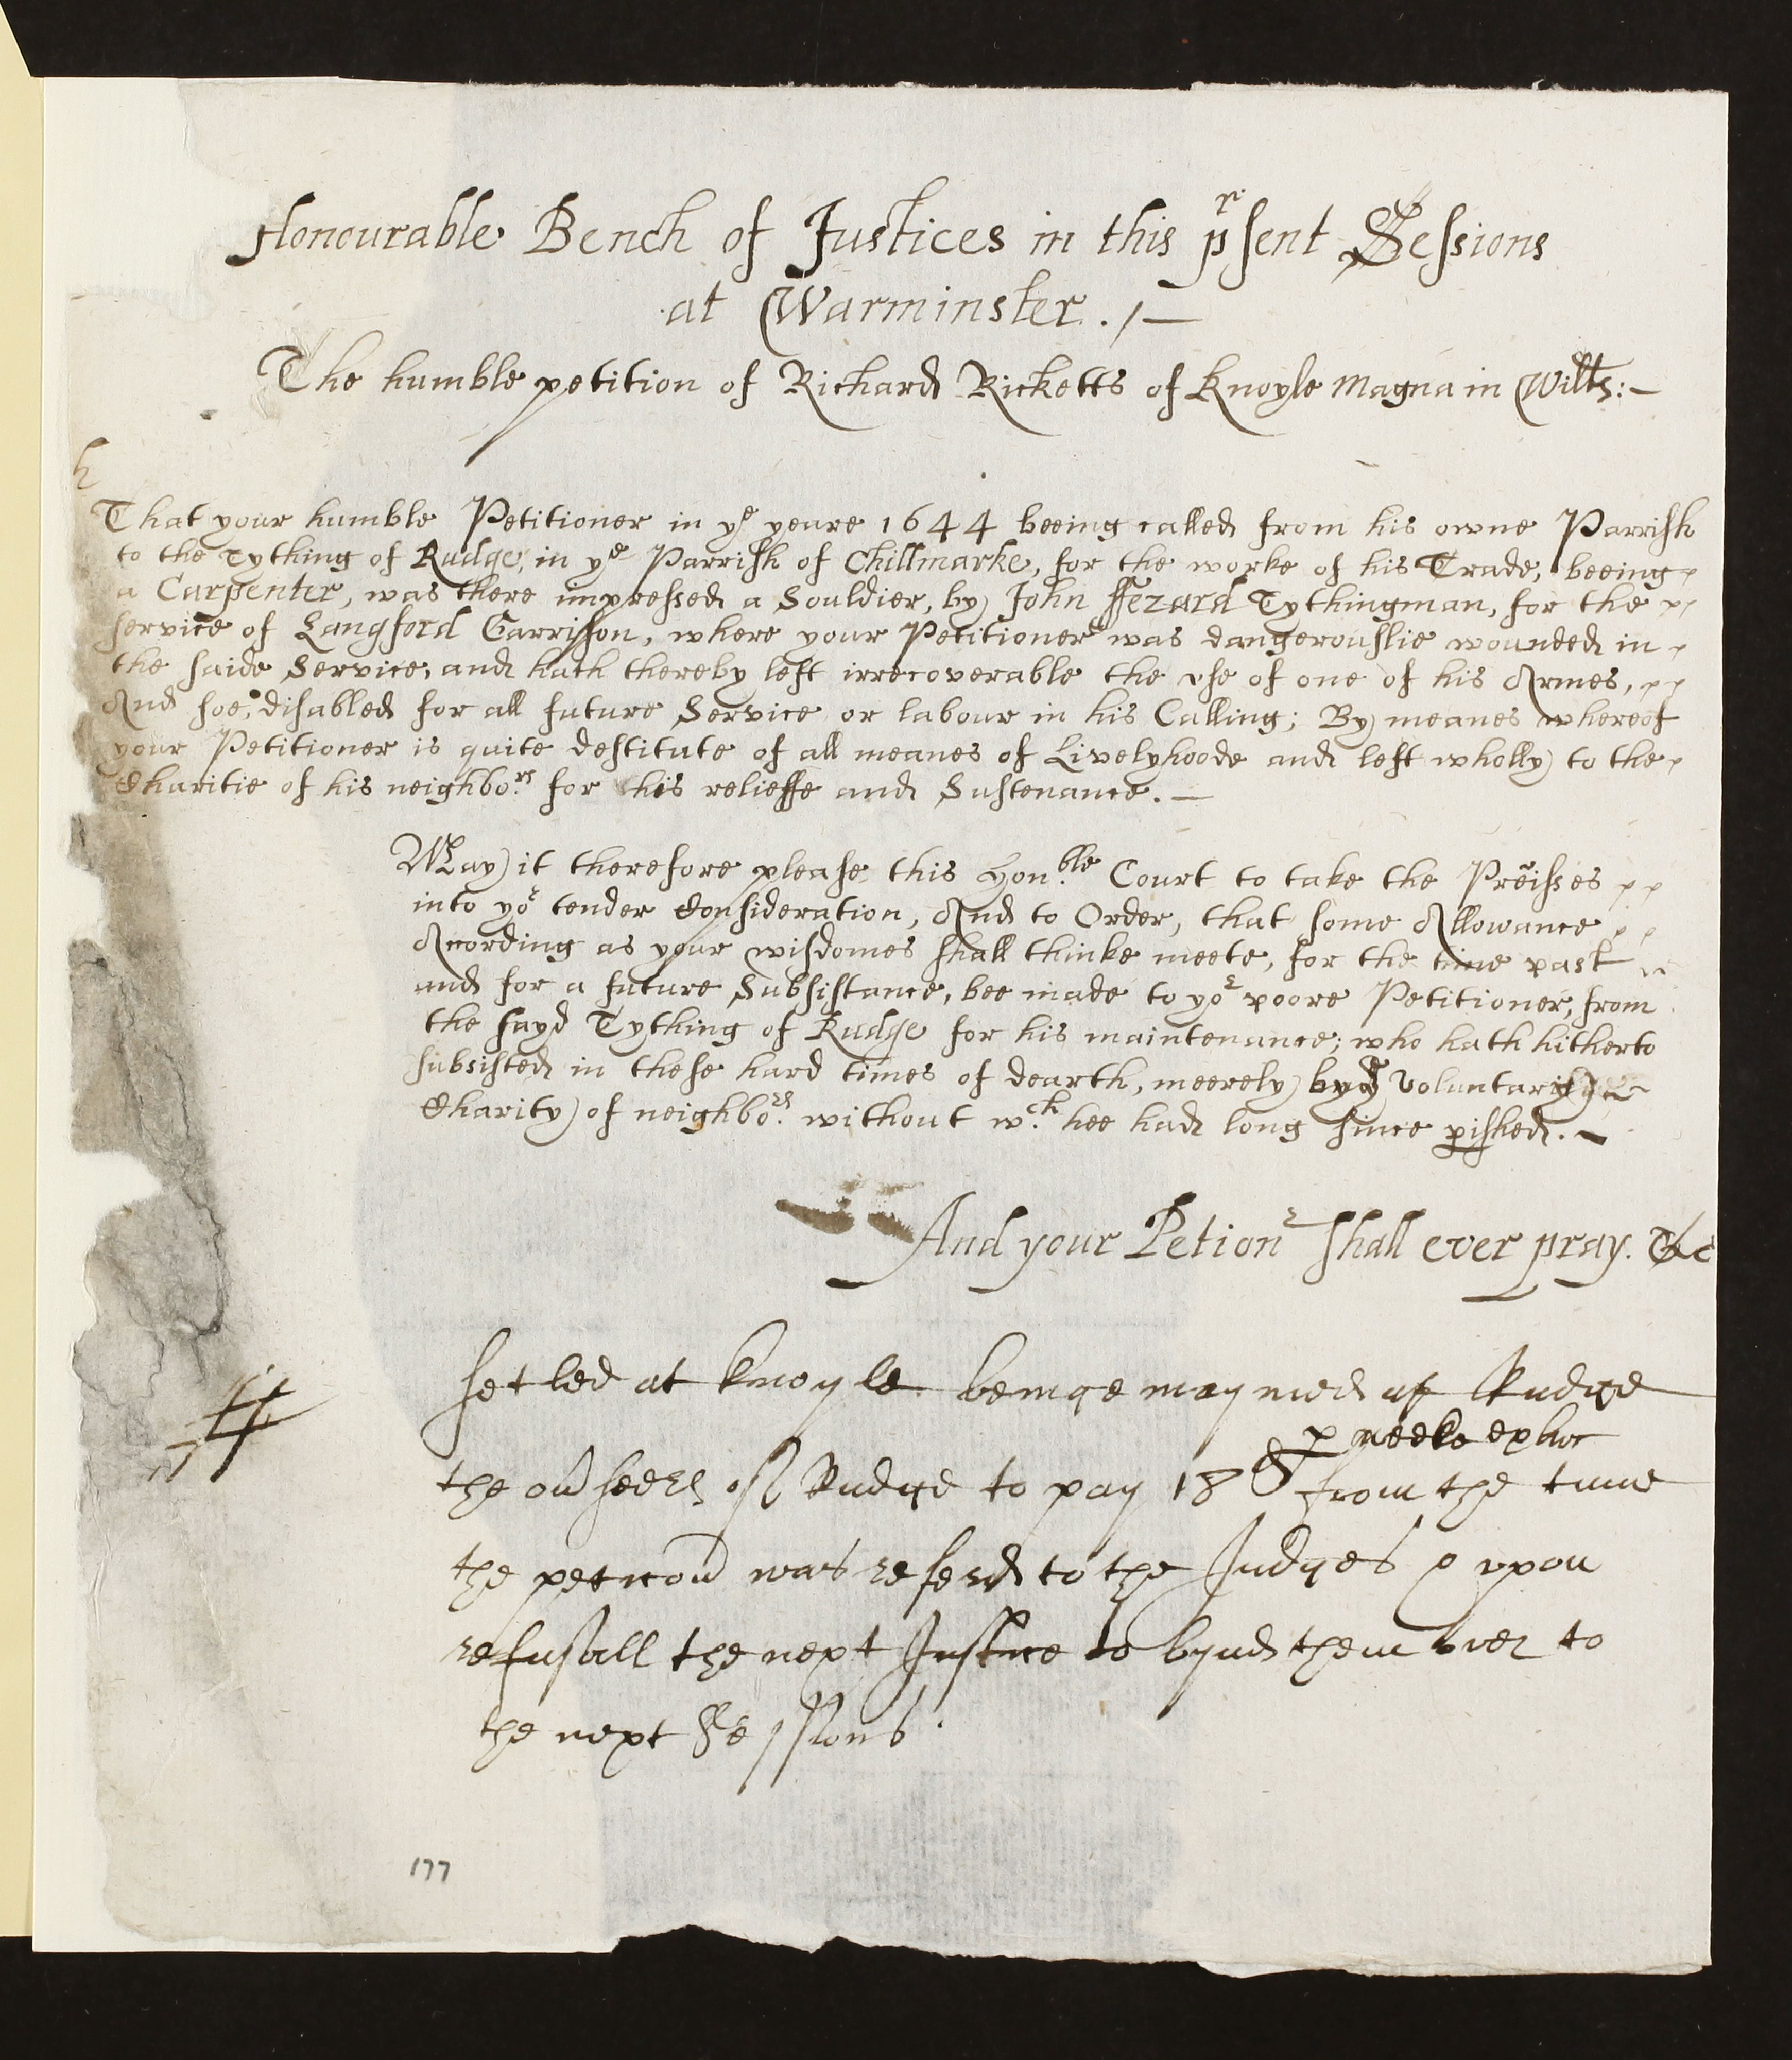 Honourable Bench of Justices in this prsent Sessions
at Warminster. /—
The humble petition of Richard Ricketts of Knoyle Magna in Wilts:—
h
That your humble Petitioner in ye yeare 1644 beeing called from his owne Parrish
to the Tything of Rudge, in ye Parrish of Chillmarke, for the worke of his Trade, beeing
a Carpenter, was there impressed a Souldier, by John ffezard Tythingman, for the
service of Langford Garrison, where your Petitioner was dangerouslie wounded in
the saide Service, and hath thereby left irrecoverable the vse of one of his Armes,
And soe, disabled for all future Service or labour in his Calling; By meanes whereof
your Petitioner is quite destitute of all meanes of Livelyhoode and left wholly to the
Charitie of his neighbors for his relieffe and Sustenance. —
May it therefore please this Honble Court to take the Preisses
into yor tender Consideration, And to Order, that some Allowance
Acording as your wisdomes shall thinke meete, for the time past
and for a future Subsistance, bee made to yor poore Petitioner, from
the sayd Tything of Rudge for his maintenance; who hath hitherto
subsisted in these hard times of dearth, meerely by ye Voluntary
Charity of neighbors without wch hee had long since pished. —
And your Petionr shall ever pray. &c
setled at Knoyle beinge maymed at Rudge
p weeke
the ouseers of Rudge to pay 18d from the time
the peticon was referd to the Judges & vpon
refusall the next Justice to bynd them over to
the next Sessions
177